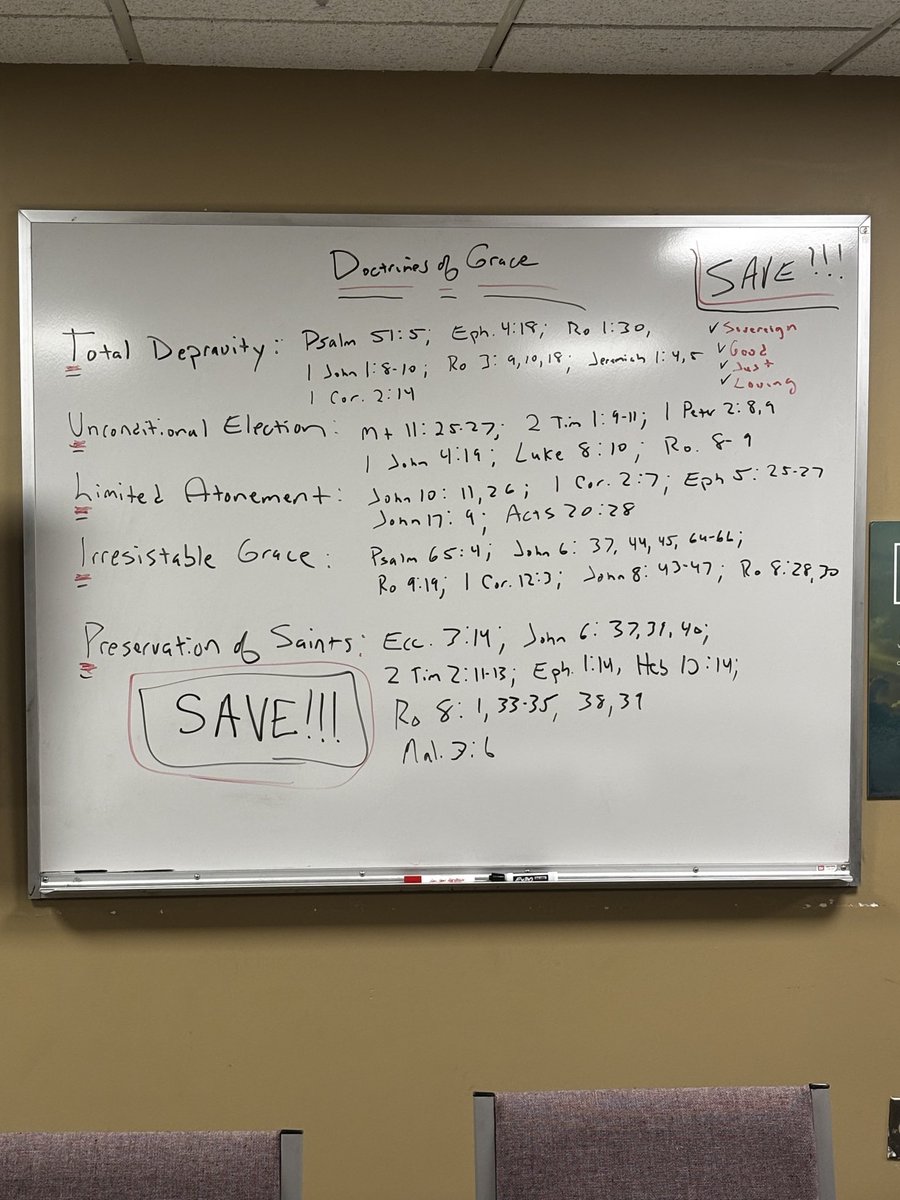 Doctrines of Grace
SAVE!!!
✓ Sovereign
✓ Good
✓ Just
✓ Loving
Total Depravity: Psalm 51:5; Eph. 4:18; Ro 1:30,
1 John 1:8-10; Ro 3: 9,10,18; Jeremiah 1:4,5
1 Cor. 2:14
Unconditional Election: Mt 11:25-27; 2 Tim 1:9-11; 1 Petr 2:8,9
1 John 4:19; Luke 8:10; Ro. 8-9
Limited Atonement: John 10: 11,26; 1 Cor. 2:7; Eph 5:25-27
John 17: 9; Acts 20:28
Irresistable Grace: Psalm 65:4; John 6: 37, 44, 45, 64-66;
Ro 9:19; 1 Cor. 12:3; John 8: 43-47; Ro 8:28,30
Preservation of Saints: Ecc. 3:14; John 6: 37,39,40;
2 Tim 2:11-13; Eph. 1:14, Heb 10:14;
Ro 8: 1, 33-35, 38,39
Mal. 3:6
SAVE!!!
EXPO